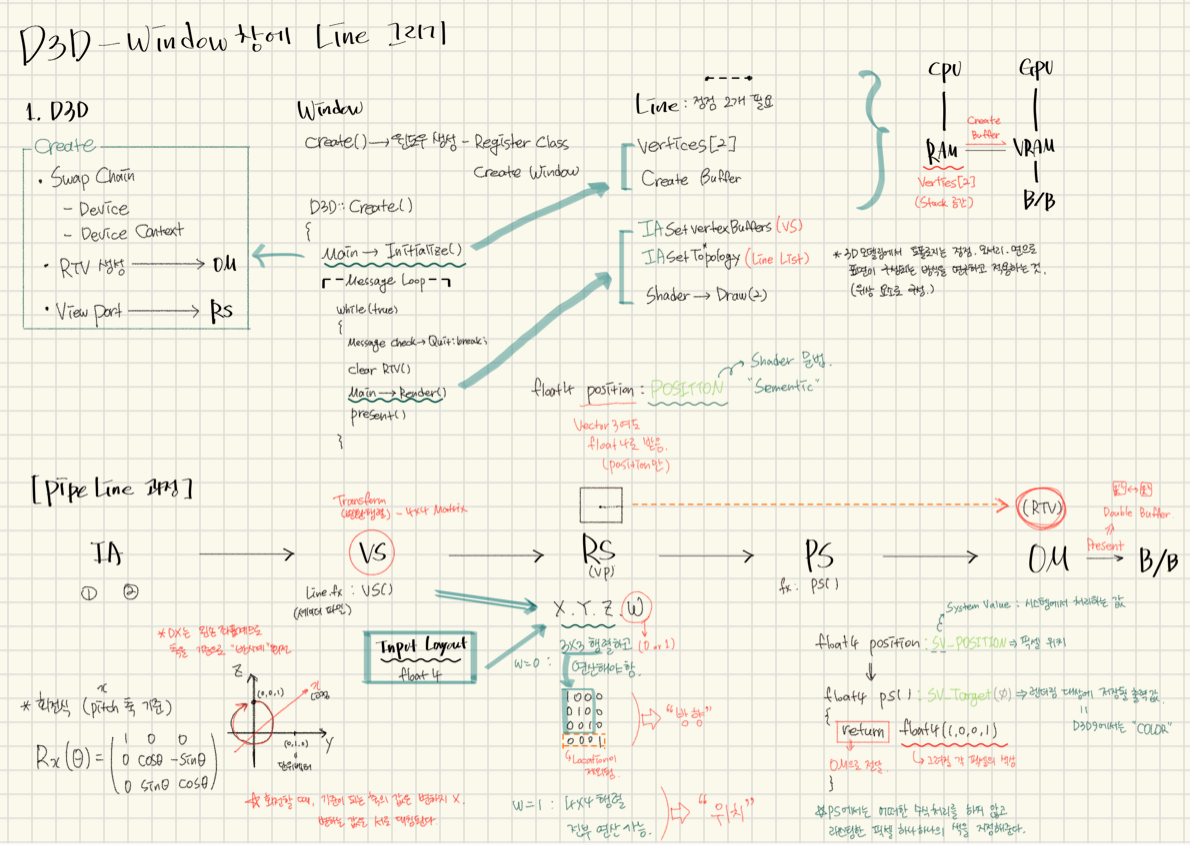 D3D - Window 창에 Line 그리기
1. D3D
Create
• Swap Chain
- Device
- Device Context
• RTV 생성 → OM
• View port → RS
Window
Create() → 윈도우 생성 - Register Class
Create Window
D3D::Create()
{
Main → Initialize()
Message Loop
while(true)
{
Message check → Quit:break;
clear RTV()
Main → Render()
present()
}
Line : 정점 2개 필요
Vertices[2]
Create Buffer
IA Set vertex Buffers (VS)
IA Set Topology (Line List)
Shader → Draw(2)
CPU GPU
Create
Buffer
RAM VRAM
Verties[2]
(Stack 공간)
B/B
* 3D 모델링에서 토폴로지는 정점, 모서리, 면으로
표면이 구성되는 방식을 하고 적용하는 것.
(위상 요소로 구성.)
float4 position : POSITION
Shader 문법.
"Sementic"
Vector 3여도
float 4로 받음.
(position만)
[Pipe Line 과정]
Transform
- 4x4 Matrix
IA → VS → RS → PS → OM → B/B
(VP)
(RTV)
Double Buffer
Present
① ②
Line.fx : VS()
(셰이더 파일)
fx : PS()
Input Layout
float 4
X. Y. Z. W
(0 or 1)
w=0 :
3x3 행렬하고
연산해야 함.
1 0 0 0
0 1 0 0
0 0 1 0
0 0 0 1
"방향"
Location이
제외됨.
w=1 : 4x4 행렬
전부 연산 가능.
"위치"
* DX는 왼손 좌표계으로
축을 기준으로 "반시계"
* 회전식 (pitch 축 기준)
x
Rx(θ) =
1 0 0
0 cosθ -sinθ
0 sinθ cosθ
Z
(0,0,1)
x
Y
(0,1,0)
단위벡터
☆ 회전할 때, 기준이 되는 축의 값은 변하지 X.
변하는 값은 서로 대칭된다
System Value : 시스템에서 처리하는 값
float4 position : SV_POSITION ⇒ 픽셀 위치
float4 ps() : SV_Target(0) ⇒ 렌더링 대상에 저장될 출력값
D3D9에서는 "COLOR"
{
return float4(1,0,0,1)
OM으로 전달
그려질 각 픽셀의 색상
}
※ PS에서는 어떠한 수식처리를 하지 않고
픽셀 하나하나의 색을 지정해준다.